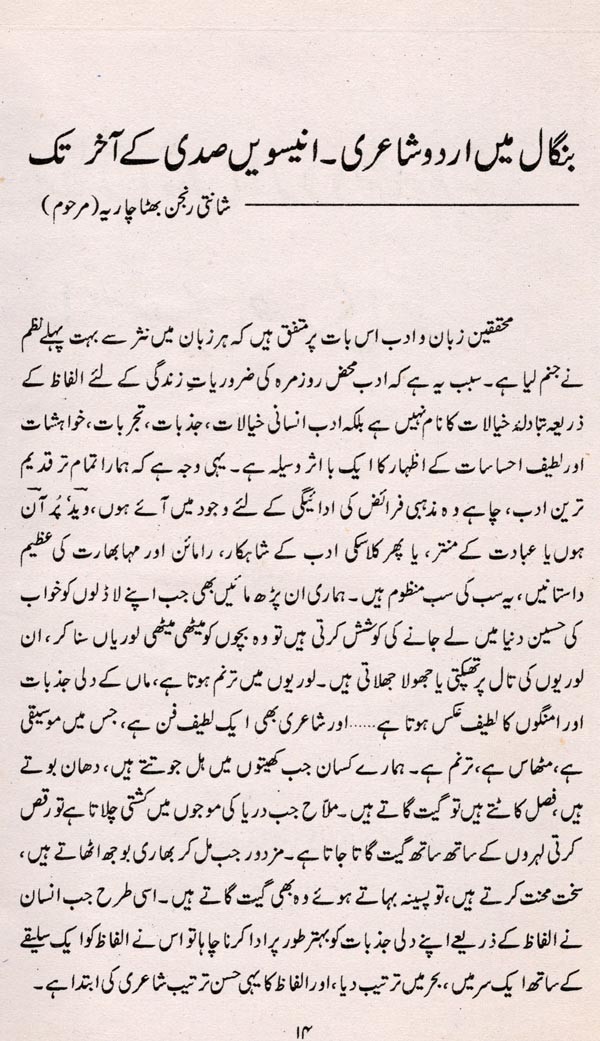 بنگال میں اردو شاعری ۔ انیسویں صدی کے آخر تک
شانتی رنجن بھٹاچاریہ (مرحوم)
محققین زبان و ادب اس بات پر متفق ہیں کہ ہر زبان میں نثر سے بہت پہلے نظم
نے جنم لیا ہے۔ سبب یہ ہے کہ ادب محض روزمرہ کی ضروریاتِ زندگی کے لئے الفاظ کے
ذریعہ تبادلۂ خیالات کا نام نہیں ہے بلکہ ادب انسانی خیالات، جذبات، تجربات، خواہشات
اور لطیف احساسات کے اظہار کا ایک با اثر وسیلہ ہے۔ یہی وجہ ہے کہ ہمارا تمام تر قدیم
ترین ادب، چاہے وہ مذہبی فرائض کی ادائیگی کے لئے وجود میں آئے ہوں، وید، پُرآن
ہوں یا عبادت کے منتر، یا پھر کلاسکی ادب کے شاہکار، رامائن اور مہابھارت کی عظیم
داستانیں، یہ سب کی سب منظوم ہیں۔ ہماری ان پڑھ مائیں بھی جب اپنے لاڈلوں کو خواب
کی حسین دنیا میں لے جانے کی کوشش کرتی ہیں تو وہ بچوں کو میٹھی میٹھی لوریاں سنا کر، ان
لوریوں کی تال پر تھپکتی یا جھولا جھلاتی ہیں۔ لوریوں میں ترنم ہوتا ہے، ماں کے دلی جذبات
اور امنگوں کا لطیف عکس ہوتا ہے...... اور شاعری بھی ایک لطیف فن ہے، جس میں موسیقی
ہے، مٹھاس ہے، ترنم ہے۔ ہمارے کسان جب کھیتوں میں ہل جوتتے ہیں، دھان بوتے
ہیں، فصل کاٹتے ہیں تو گیت گاتے ہیں۔ ملاّح جب دریا کی موجوں میں کشتی چلاتا ہے تو رقص
کرتی لہروں کے ساتھ ساتھ گیت گاتا جاتا ہے۔ مزدور جب مل کر بھاری بوجھ اٹھاتے ہیں،
سخت محنت کرتے ہیں، تو پسینہ بہاتے ہوئے وہ بھی گیت گاتے ہیں۔ اسی طرح جب انسان
نے الفاظ کے ذریعے اپنے دلی جذبات کو بہتر طور پر ادا کرنا چاہا تو اس نے الفاظ کو ایک سلیقے
کے ساتھ ایک سر میں، بحر میں ترتیب دیا، اور الفاظ کا یہی حسن ترتیب شاعری کی ابتدا ہے۔
۱۴